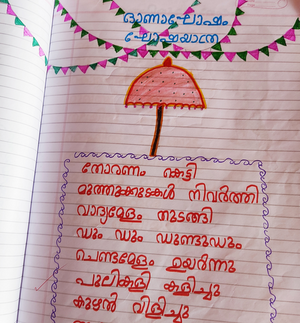 ഓണാഘോഷം
ഘോഷയാത്ര
തോരണം കെട്ടി
മുത്തുക്കുടകൾ നിവർത്തി
വാദ്യമേളം തുടങ്ങി
ഡും ഡും ഡുണ്ടുഡും
ചെണ്ടമേളം ഉയർന്നു
പുലികളി കളിച്ചു
കുഴൽ വിളിച്ചു